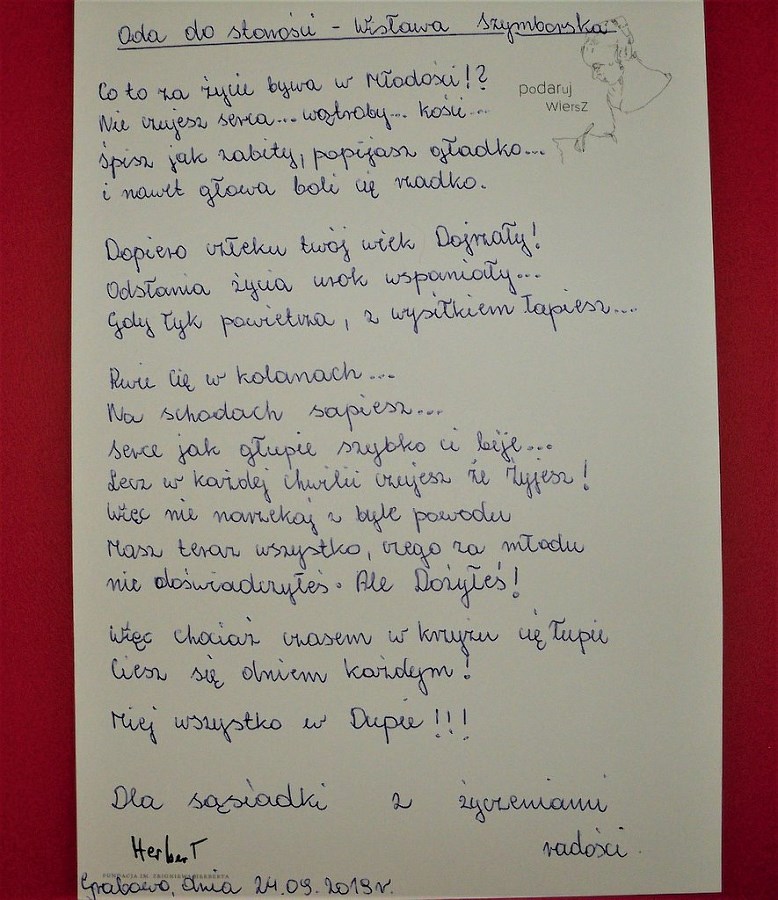 Oda do starości - Wisława Szymborska
podaruj
wiersz
Co to za życie bywa w Młodości!?
Nie czujesz serca... wątroby... kości...
śpisz jak zabity, popijasz gładko...
i nawet głowa boli cię rzadko.
Dopiero człeku twój wiek Dojrzały!
Odsłania życia urok wspaniały...
Gdy łyk powietrza, z wysiłkiem łapiesz...
Rwie Cię w kolanach...
Na schodach sapiesz...
Serce jak głupie szybko ci bije...
Lecz w każdej chwili czujesz że Żyjesz!
Więc nie narzekaj z byle powodu
Masz teraz wszystko, czego za młodu
nie doświadczyłeś. Ale Dożyłeś!
Więc chociaż czasem w krzyżu cię łupie
Ciesz się dniem każdym!
Miej wszystko w Dupie!!!
Dla sąsiadki z życzeniami
radości
HerberT
FUNDACJA IM. ZBIGNIEWA HERBERTA
Grabowo, dnia 24.09.2019r.